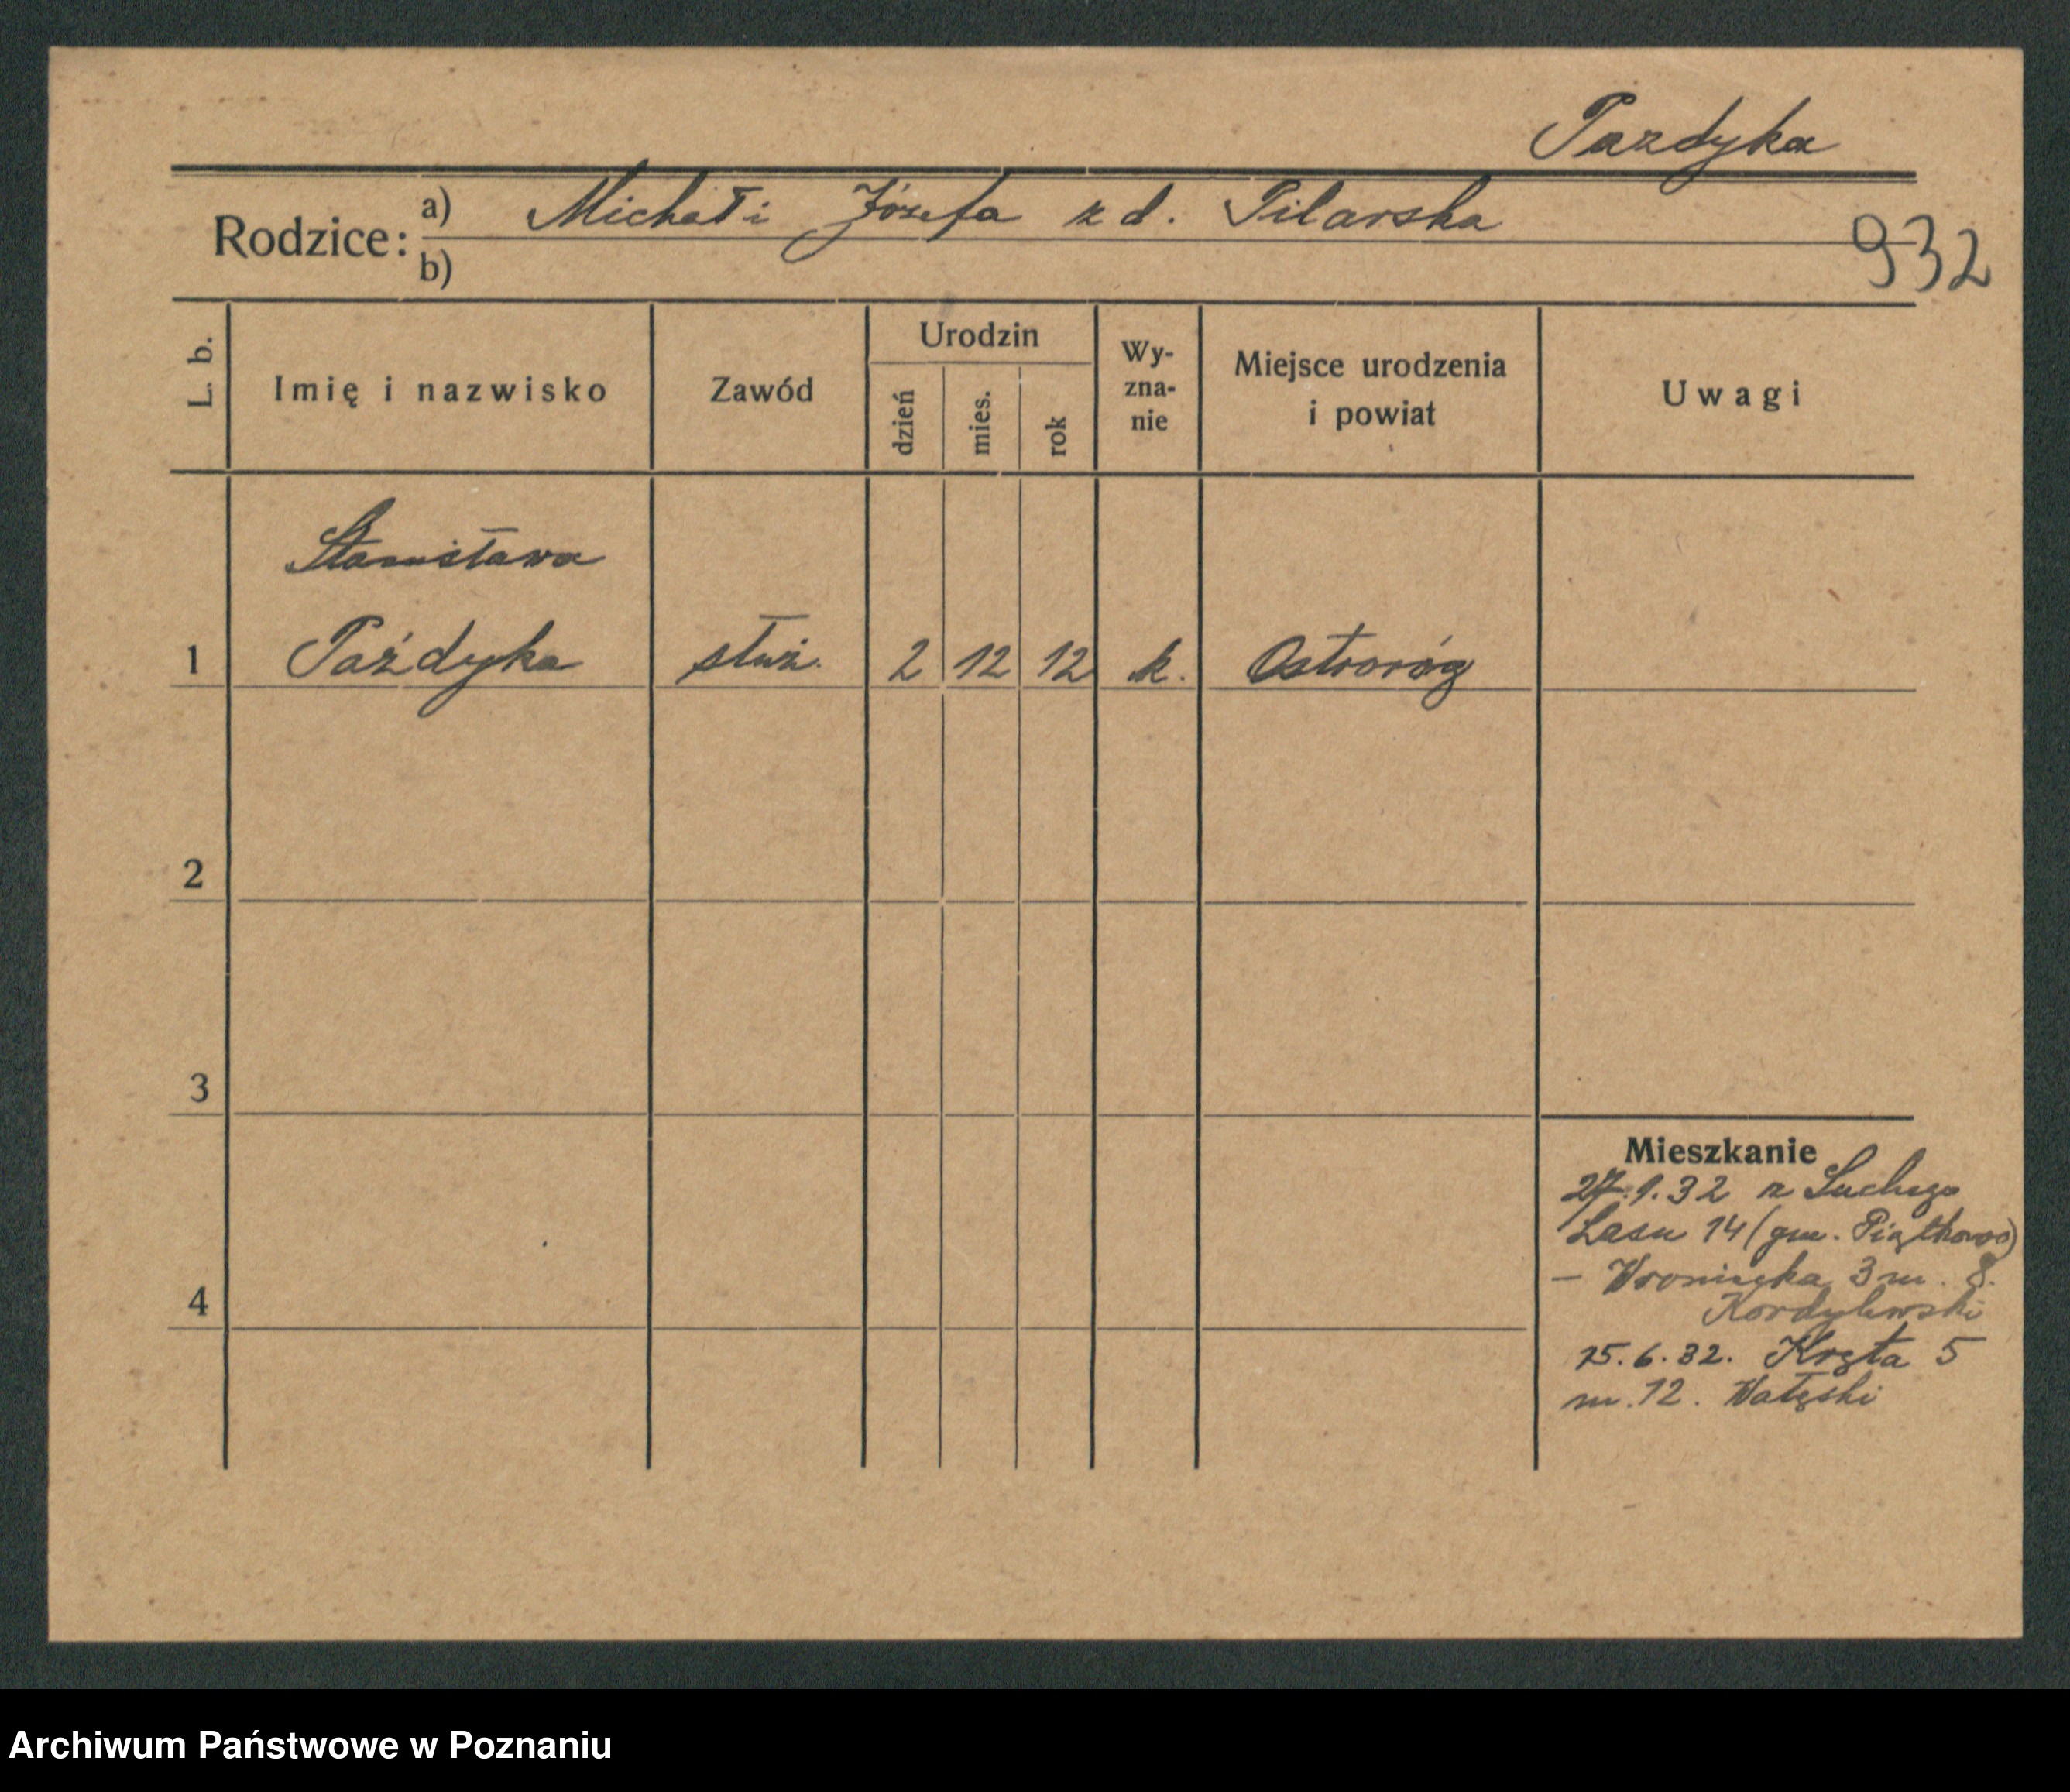 Pazdyka
Rodzice: a) Michał i Józefa z d. Pilarska
b)
932
L. b.
Imię i nazwisko
Zawód
Urodzin
dzień
mies.
rok
Wy-
zna-
nie
Miejsce urodzenia
i powiat
Uwagi
Stanisława
1 Paździka służ. 2 12 12 k. Ostroróg
2
3
4
Mieszkanie
27.9.32 z Suchego
Lasu 14 (gm. Piątkowo)
– Wroniecka 3 m. 8.
Kordylewski
15.6.32. Kręta 5
m. 12. Wałęski
Archiwum Państwowe w Poznaniu